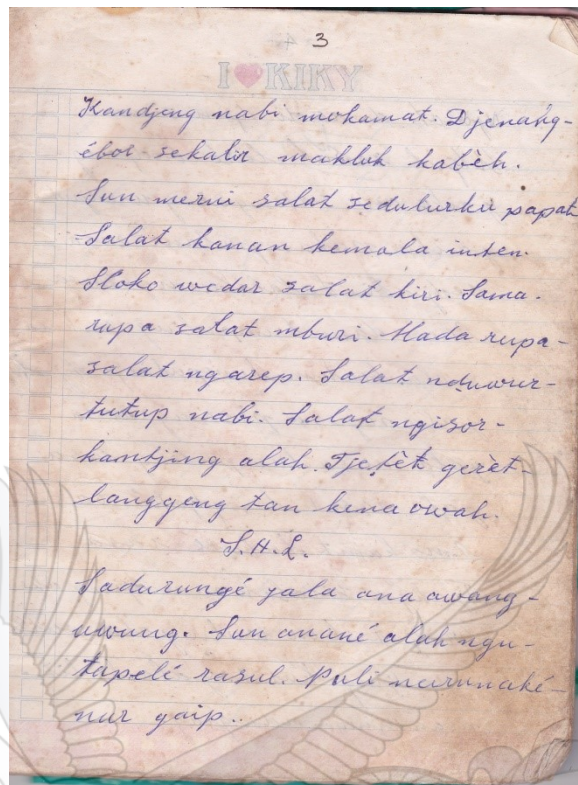 3
I ❤ KIKY
Kandjeng nabi mokamat. Djenang-
ébor sekalir makluk kabèh.
Sun merni salat sedulurku papat
Salat kanan kemala inten.
Sloko wedar salat kiri. Sama-
rupa salat mburi. Mada rupa-
salat ngarep. Salat nduwur-
tutup nabi. Salat ngisor-
kantjing alah. Tjetèt gerèt-
langgeng tan kena owah.
S.H.L.
Sadurungé jala ana awang-
uwung. Sun anané alah ngu-
tapelé rasul. Puli nurunaké-
nur gaip..